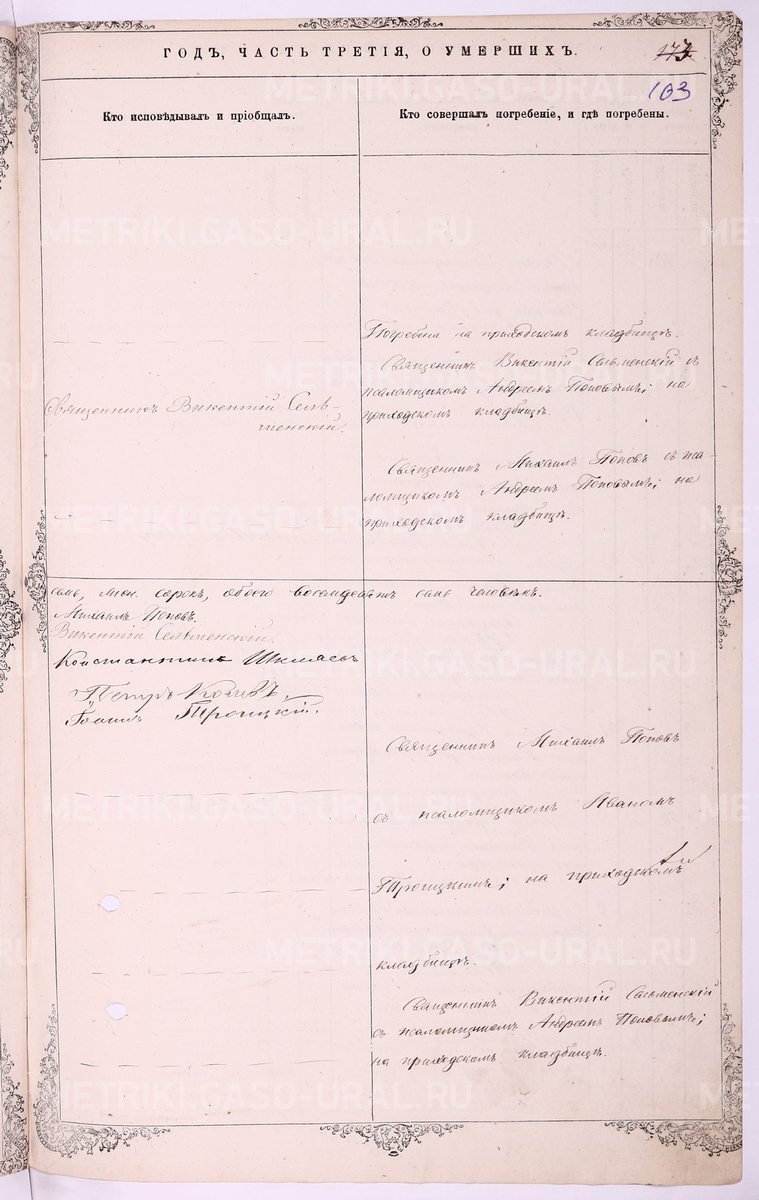 ГОДЪ, ЧАСТЬ ТРЕТІЯ, О УМЕРШИХЪ.
103
Кто исповѣдывалъ и пріобщалъ.
Кто совершалъ погребеніе, и гдѣ погребены.
Погребена на приходскомъ кладбищѣ.
Священникъ Викентій Сельменскій съ
псаломщикомъ Андреемъ Поповымъ; на
приходскомъ кладбищѣ.
Священникъ Викентій Сель-
менскій.
Священникъ Михаилъ Поповъ съ пса-
ломщикомъ Андреемъ Поповымъ; на
приходскомъ кладбищѣ.
семь, жен. сорокъ, обоего восемдесятъ семь человѣкъ.
Михаилъ Поповъ.
Викентій Сельменскій.
Константинъ Шкляевъ
Петръ
Іоаннъ Троицкій.
Священникъ Михаилъ Поповъ
съ псаломщикомъ Иваномъ
Троицкимъ; на приходскомъ
кладбищѣ.
Священникъ Викентій Сельменскій
съ псаломщикомъ Андреемъ Поповымъ;
на приходскомъ кладбищѣ.
METRIKI.GASO-URAL.RU